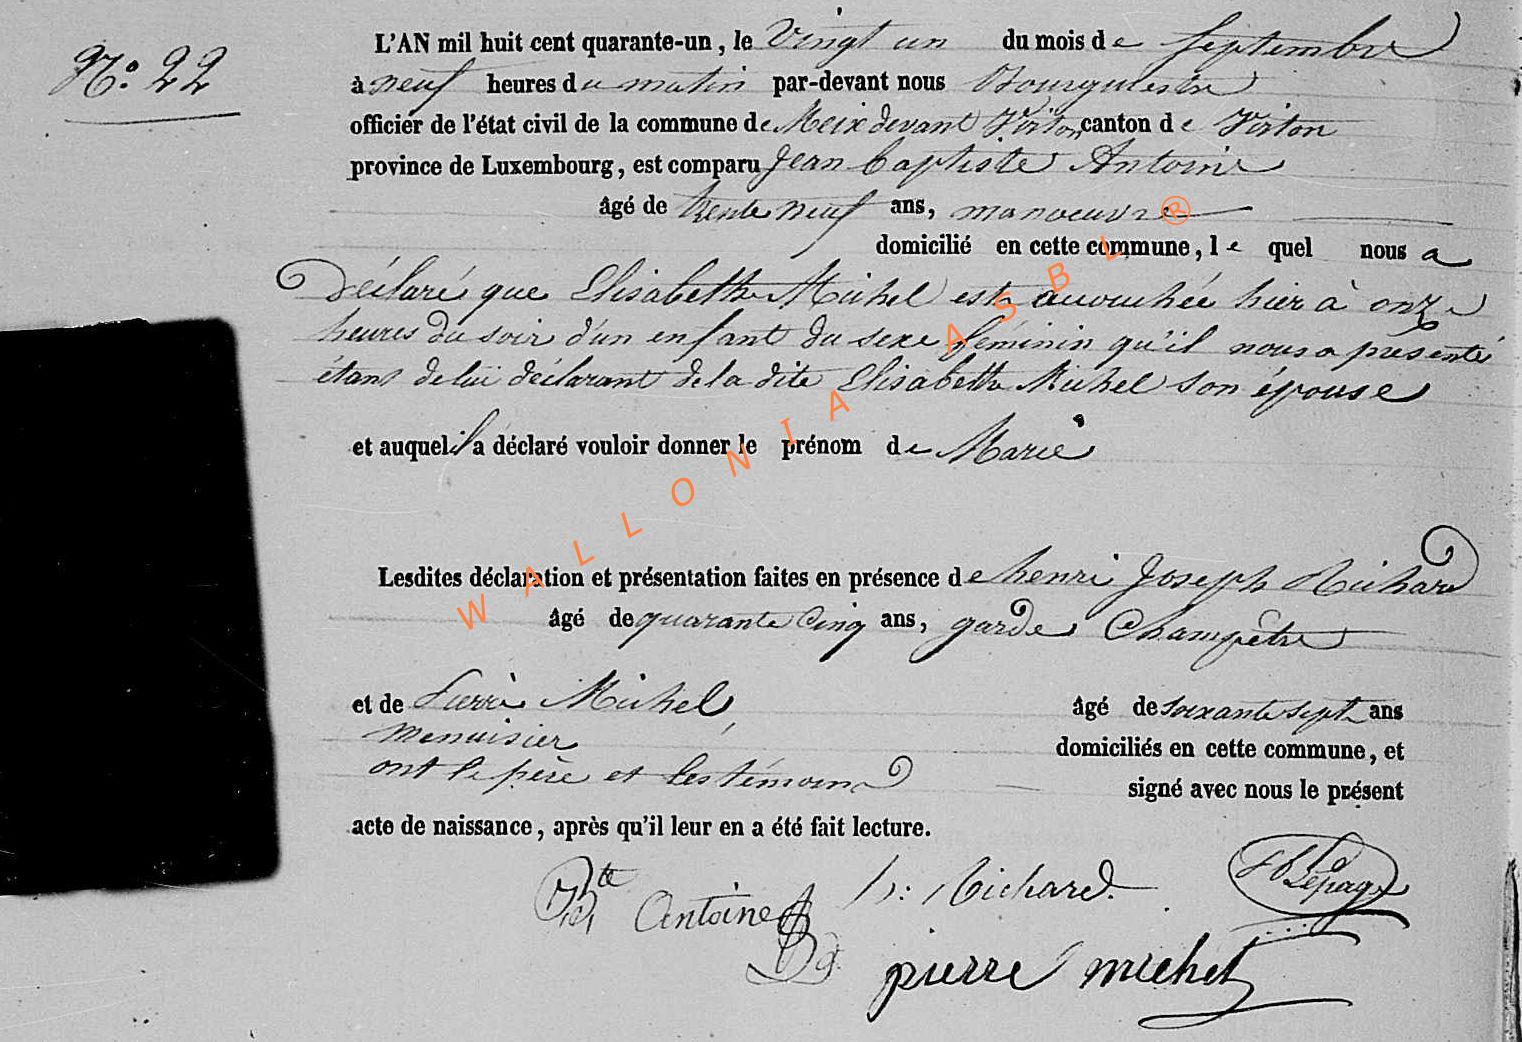 N.° 22
L'AN mil huit cent quarante-un, le Vingt un du mois de Septembre
à neuf heures du matin par-devant nous Bourgmestre
officier de l'état civil de la commune de Meix devant Virton canton de Virton
province de Luxembourg, est comparu Jean Baptiste Antoine
âgé de trente neuf ans, manoeuvre
domicilié en cette commune, le quel nous a
Déclaré que Elisabethe Michel est accouchée hier à onze
heures du soir d'un enfant du sexe féminin qu'il nous a présenté
étant de lui déclarant de la dite Elisabethe Michel son épouse
et auquel il a déclaré vouloir donner le prénom de Marie
Lesdites déclaration et présentation faites en présence de henri Joseph Richard
âgé de quarante cinq ans, garde Champêtre
et de Pierre Michel, âgé de soixante sept ans
menuisier domiciliés en cette commune, et
ont le père et les témoins signé avec nous le présent
acte de naissance, après qu'il leur en a été fait lecture.
Antoine h: Richard. Lepage
pierre michel
WALLONIA ASBL ®